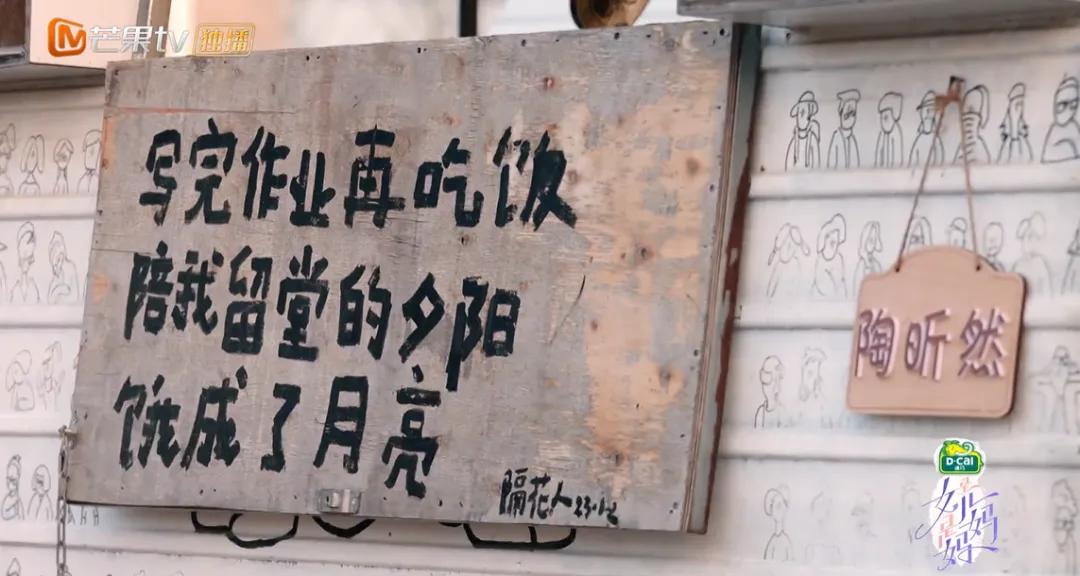 芒果tv 独播
写完作业再吃饭
陪我留堂的夕阳
饿成了月亮
隔花人 23.1.2
陶昕然
D-Cal